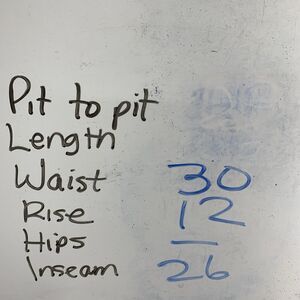 Pit to pit
Length
Waist 30
Rise 12
Hips —
Inseam 26